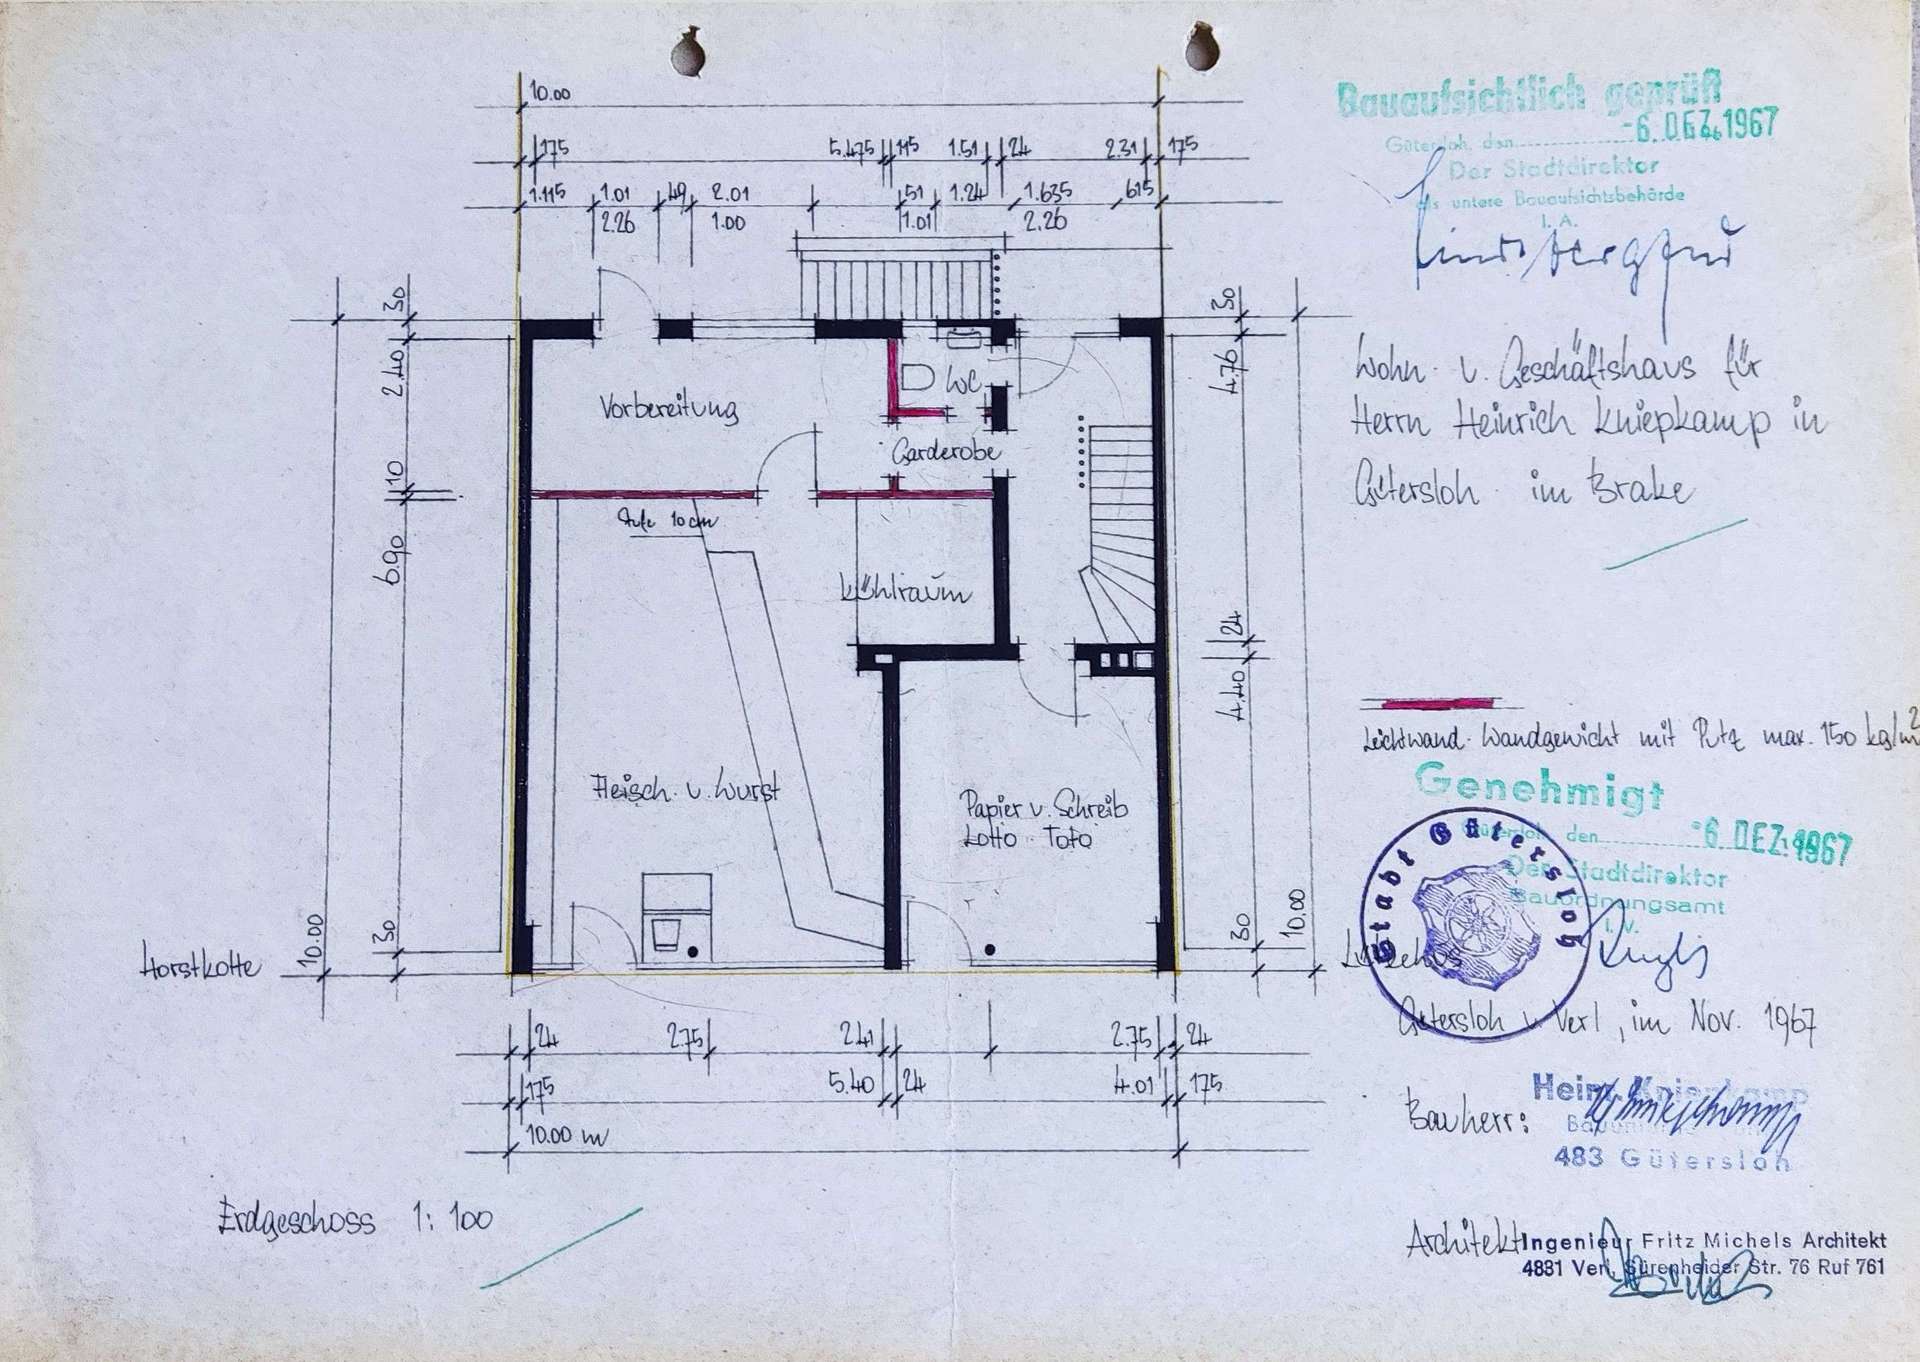 10.00
175 5.475 115 1.51 24 2.31 175
1.115 1.01 49 2.01 51 1.24 1.635 615
2.26 1.00 1.01 2.26
30
2.40
10
6.90
30
10.00
Vorbereitung
WC
Garderobe
Stufe 10 cm
Kühlraum
Fleisch- u. Wurst
Papier u. Schreib
Lotto - Toto
30
4.76
24
4.40
30
10.00
Horstkotte
24 2.75 2.41 2.75 24
175 5.40 24 4.01 175
10.00 m
Erdgeschoss 1:100
Bauaufsichtlich geprüft
Gütersloh, den -6. DEZ. 1967
Der Stadtdirektor
als untere Bauaufsichtsbehörde
I. A.
Wohn- u. Geschäftshaus für
Herrn Heinrich Kniepkamp in
Gütersloh im Brake
Leichtwand - Wandgewicht mit Putz max. 150 kg/m²
Genehmigt
Gütersloh, den -6. DEZ. 1967
Der Stadtdirektor
Bauordnungsamt
I. V.
Stadt Gütersloh
Gütersloh u. Verl, im Nov. 1967
Bauherr:
Heinr. Kniepkamp
483 Gütersloh
Architekt
Ingenieur Fritz Michels Architekt
4831 Verl, Sürenheider Str. 76 Ruf 761